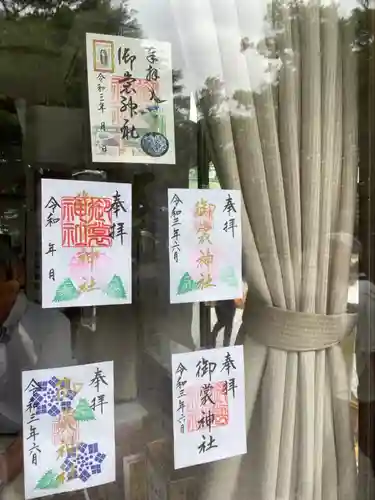 奉拝
御嵩神社
令和三年 月 日
奉拝
御嵩神社
神社
令和 年 月
奉拝
御嵩神社
令和三年六月
奉拝
神社
令和三年六月
奉拝
御嵩神社
令和三年六月